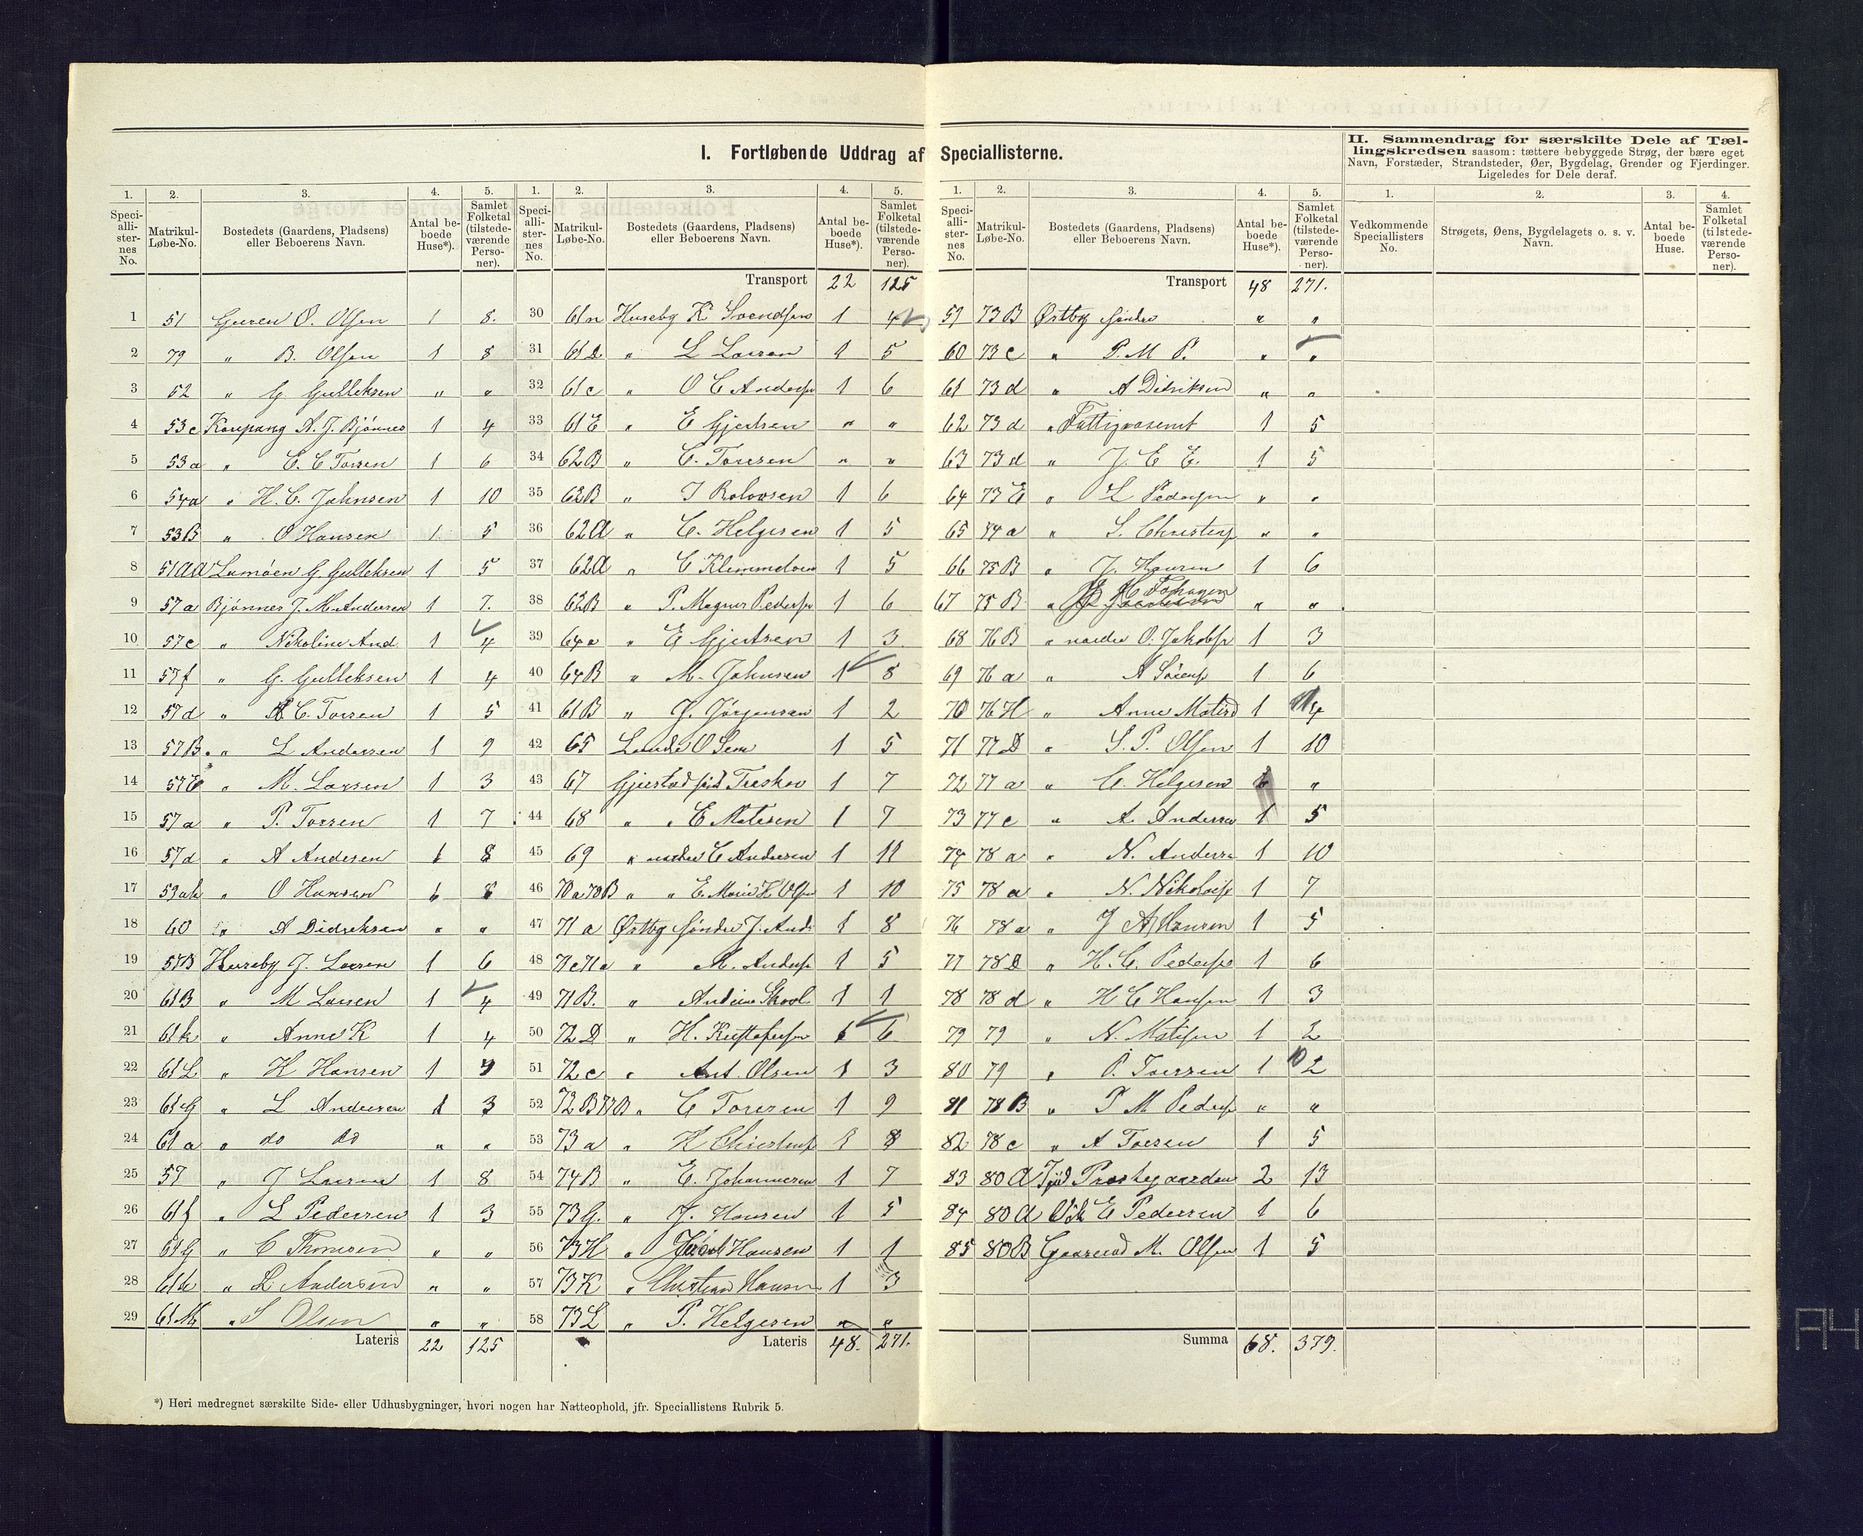 I. Fortløbende Uddrag af Speciallisterne.
II. Sammendrag for særskilte Dele af Tællingskredsen saasom: tættere bebyggede Strøg, der bære eget Navn, Forstæder, Strandsteder, Øer, Bygdelag, Grender og Fjerdinger. Ligeledes for Dele deraf.
1. 2. 3. 4. 5.
Speciallisternes No. Matrikul-Løbe-No. Bostedets (Gaardens, Pladsens) eller Beboerens Navn. Antal beboede Huse*). Samlet Folketal (tilstedeværende Personer).
1 51 Guren O. Olsen 1 8.
2 79 " B. Olsen 1 8
3 52 " G Gulleksen " "
4 53c Kaupang A. J. Bjønnes 1 4
5 53a " C. C Torsen 1 6
6 54a " H. C. Johnsen 1 10
7 53B " O Hansen 1 5
8 51Ad Lamøen G. Gulleksen 1 5
9 57a Bjønnes J. M. Andersen 1 7.
10 57c " Nikoline And. 1 4
11 57f " G. Gulleksen 1 4
12 57d " A C. Torsen 1 5
13 57B " L Andersen 1 9
14 57E " M. Larsen 1 3
15 57a " P. Torsen 1 7
16 57d " A Andersen 1 8
17 59ab " O Hansen 1 8
18 60 " A Didriksen " "
19 57B Huseby J. Larsen 1 6
20 61B " M Larsen 1 4
21 61k " Anne K 1 4
22 61L " H Hansen 1 4
23 61G " L Andersen 1 3
24 61a " do do " "
25 57 " J Larsen 1 8
26 61f " L Pedersen 1 3
27 61G " C Thomsen " "
28 61k " L. Andersen " "
29 61M " S Olsen " "
Lateris 22 125
1. 2. 3. 4. 5.
Speciallisternes No. Matrikul-Løbe-No. Bostedets (Gaardens, Pladsens) eller Beboerens Navn. Antal beboede Huse*). Samlet Folketal (tilstedeværende Personer).
Transport 22 125
30 61n Huseby K Svendsen 1 4
31 61D " L Larsen 1 5
32 61c " O C Anders 1 6
33 61E " E Gjertsen " "
34 62B " C. Toresen " "
35 62B " J Rolovsen 1 6
36 62A " C. Helgesen 1 5
37 62A " C Klemmetsen 1 5
38 62B " P. Magnus Peders 1 6
39 64a " E Gjertsen 1 3
40 64B " M. Johnsen 1 8
41 61B " J. Jørgensen 1 2
42 65 Lande O Sem 1 5
43 67 Gjerstad Treskov 1 7
44 68 " " E Matesen 1 7
45 69 " nordre C Andersen 1 11
46 70a 70B " " E. Marie H Ols 1 10
47 71a Østby søndre J. And. 1 8
48 71c 71a " M. Anders 1 5
49 71B. " Andrine Skool 1 1
50 72D " H. Kristofersen 1 6
51 72c " Ant. Olsen 1 3
52 72B 72B " C Toresen 1 9
53 73a " H Christens 1 8
54 74B " E. Johannesen 1 7
55 73G. " J. Hansen 1 5
56 73H " Hansen 1 1
57 73K " Christian Hansen 1 3
58 73L " P. Helgesen " "
Lateris 48. 271.
1. 2. 3. 4. 5.
Speciallisternes No. Matrikul-Løbe-No. Bostedets (Gaardens, Pladsens) eller Beboerens Navn. Antal beboede Huse*). Samlet Folketal (tilstedeværende Personer).
Transport 48 271.
59 73B Østby søndre " "
60 73c " P. M P. " "
61 73d " A Didriksen " "
62 73d " Fattigvæsent 1 5
63 73d " J. E E. 1 5
64 73E " L Pedersen " "
65 74a " S. Christens " "
66 75B " J. Hansen 1 6
67 75B " " "
68 76B " nordre O. Jakobs 1 3
69 76a " A Sørens 1 6
70 76H " Anne Matisd 1 4
71 77D " S. P. Olsen 1 10
72 77a " C. Helgesen "
73 77c " A. Anders 1 5
74 78a " N. Anders 1 10
75 78a " N. Nikolais 1 7
76 78a " J A Hansen 1 5
77 78D " H. C. Peders 1 6
78 78d " H C Hansen 1 3
79 79 " N. Matisen 1 2
80 79 " O. Toresen 1 2
81 78B " P M Peders " "
82 78c " A Toresen 1 5
83 80A Tjød Prestegaarden 2 13
84 80A Vik E Pedersen 1 6
85 80B Gaarud M. Olsen 1 5
Summa 68. 379.
1. 2. 3. 4.
Vedkommende Speciallisters No. Strøgets, Øens, Bygdelagets o. s. v. Navn. Antal beboede Huse. Samlet Folketal (tilstedeværende Personer).
*) Heri medregnet særskilte Side- eller Udhusbygninger, hvori nogen har Natteophold, jfr. Speciallistens Rubrik 5.